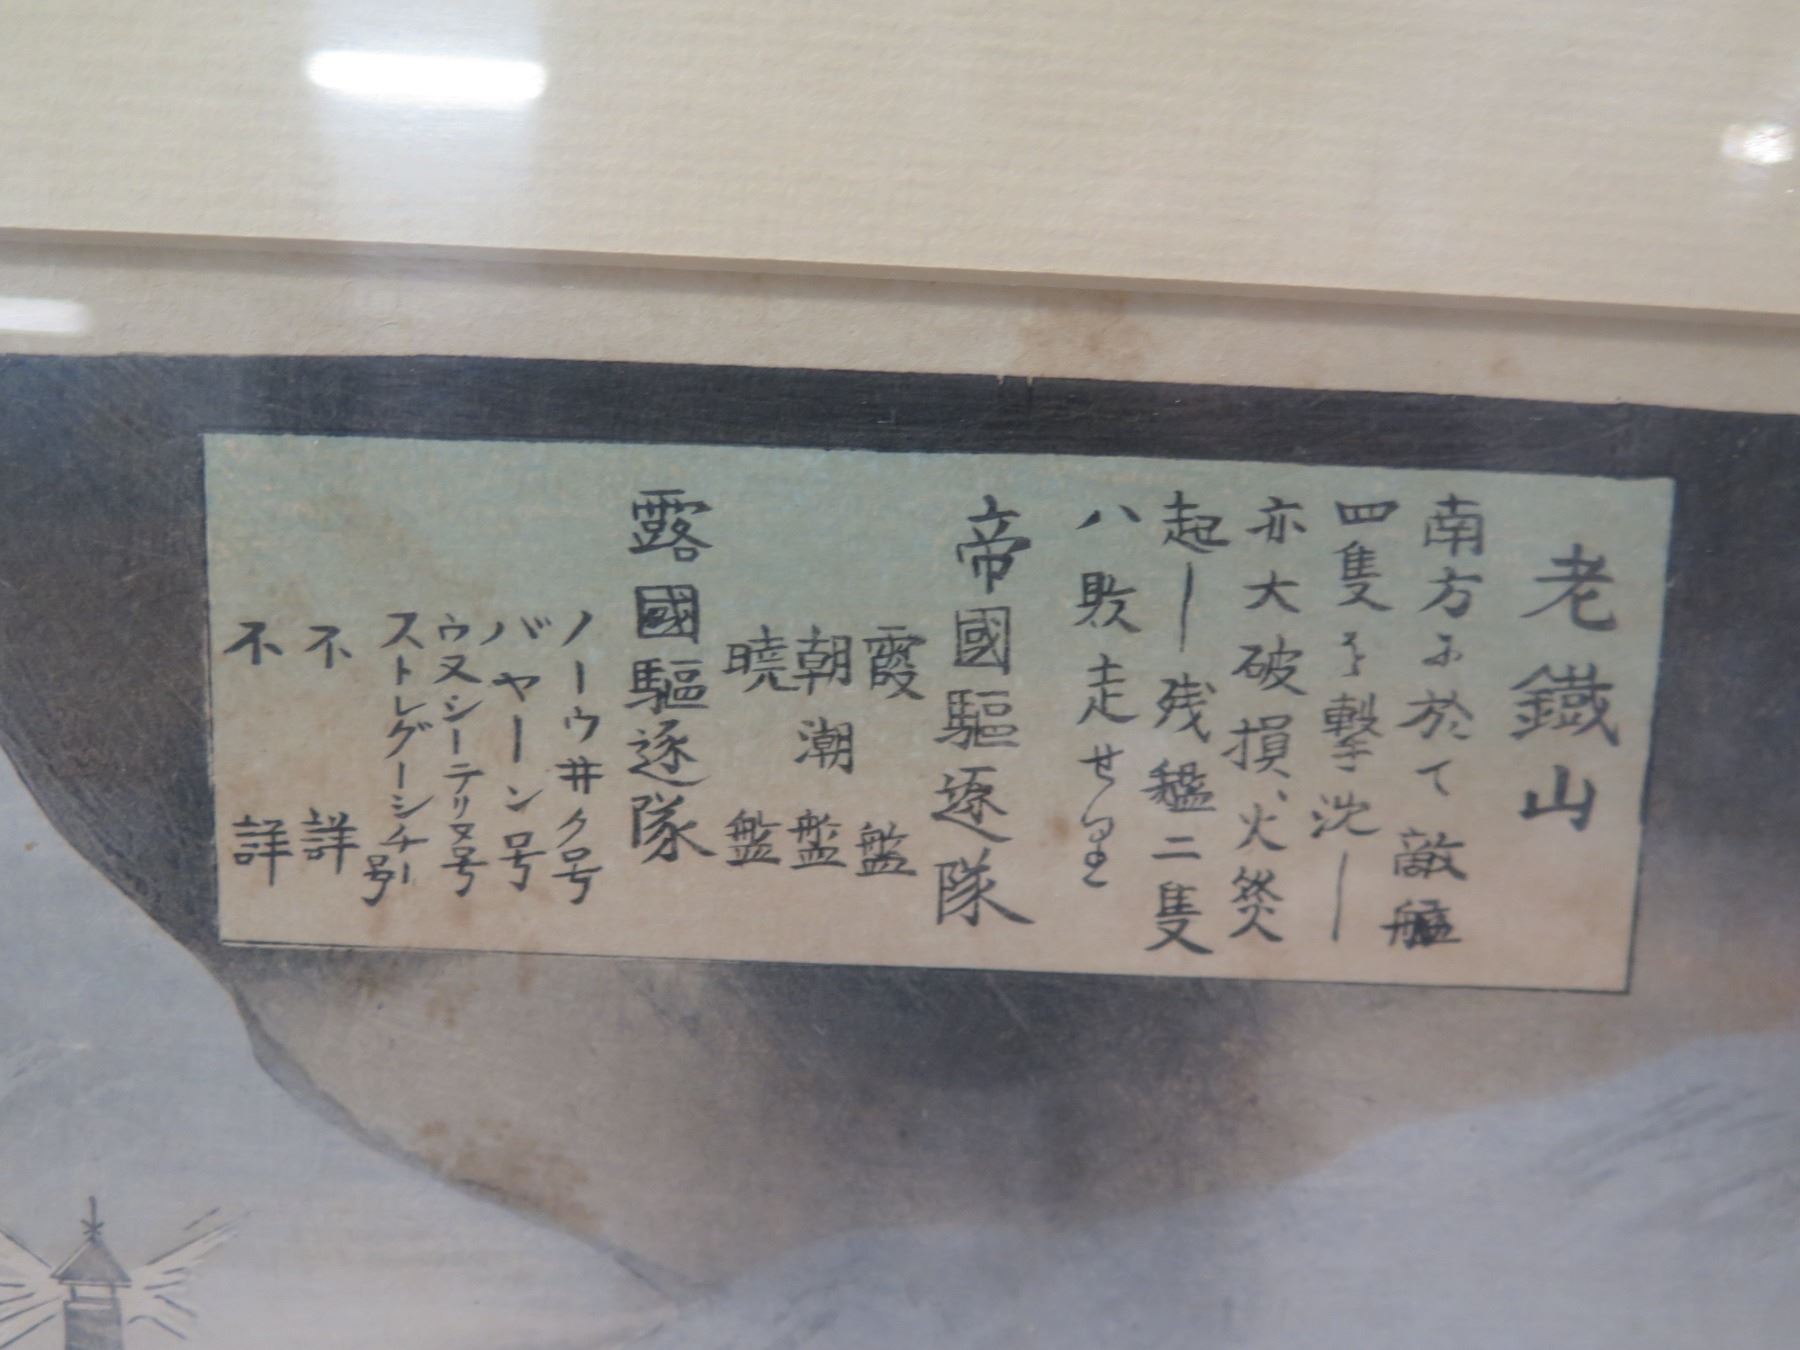 老鐵山
南方に於て敵艦
四隻を撃沈し
亦大破損、火災
起し残艦二隻
ハ敗走せり
帝國驅逐隊
霞艦
朝潮艦
暁艦
露國驅逐隊
ノーウ井ク号
バヤーン号
ウヌシーテリヌ号
ストレグーシチー号
不詳
不詳